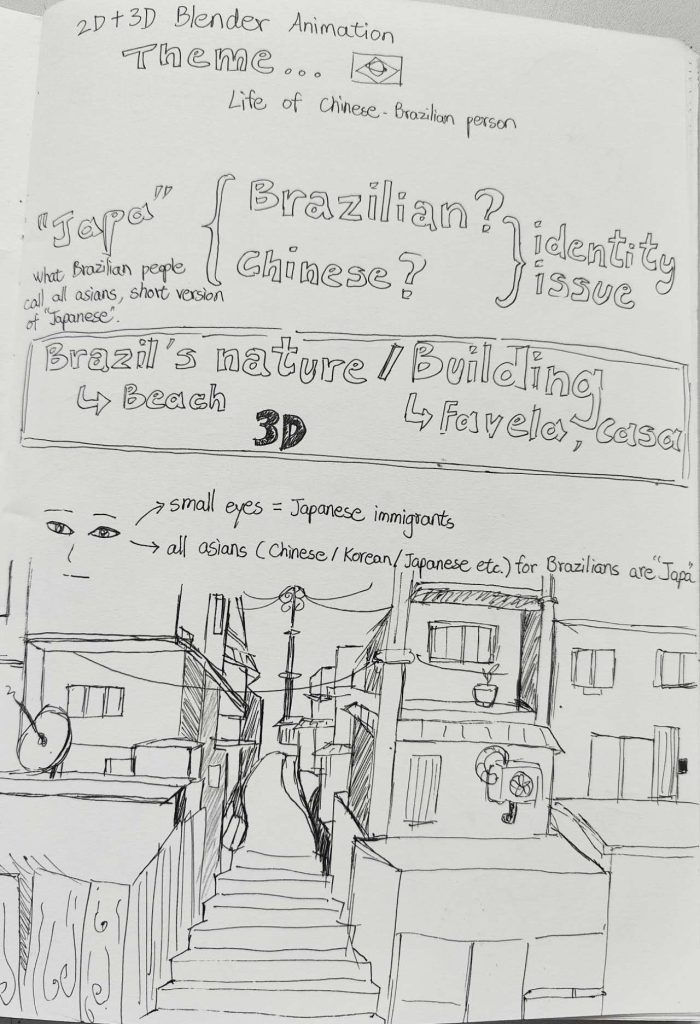 2D+3D Blender Animation
Theme...
Life of Chinese-Brazilian person
"Japa"
what Brazilian people
call all asians, short version
of "Japanese".
Brazilian?
Chinese?
identity
issue
Brazil's nature / Building
↳ Beach
↳ Favela, casa
3D
small eyes = Japanese immigrants
all asians (Chinese/Korean/Japanese etc.) for Brazilians are "Japa"